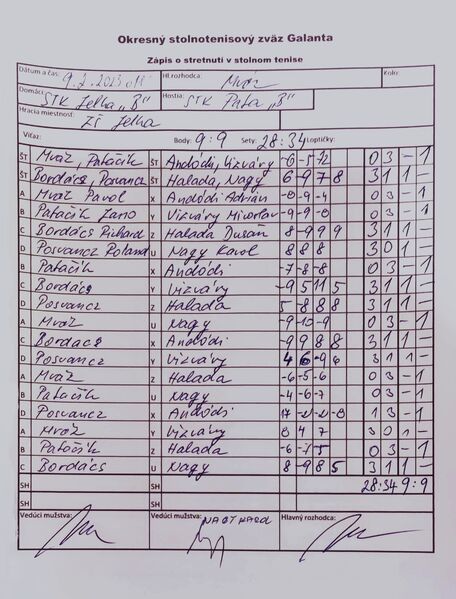 Okresný stolnotenisový zväz Galanta
Zápis o stretnutí v stolnom tenise
Dátum a čas: 9.2.2023 Hl.rozhodca: Mráz Kolo:
Domáci: STK Jelka "B" Hostia: STK Pata "B"
Hracia miestnosť: ZŠ Jelka
Víťaz: Body: 9:9 Sety: 28:34 Loptičky:
ŠT Mráz, Patáčik ŠT Andódi, Vizváry -6 -5 -12 0 3 - 1
ŠT Bordács, Posvancz ŠT Halada, Nagy 6 -9 7 8 3 1 1 -
A Mráz Pavol X Andódi Adrián -8 -9 -4 0 3 - 1
B Patáčik Jano Y Vizváry Miroslav -9 -9 -8 0 3 - 1
C Bordács Richard Z Halada Dušán 8 -9 9 9 3 1 1 -
D Posvancz Roland U Nagy Karol 8 8 8 3 0 1 -
B Patáčik X Andódi -7 -8 -8 0 3 - 1
C Bordács Y Vizváry -9 5 11 5 3 1 1 -
D Posvancz Z Halada 5 -8 8 8 3 1 1 -
A Mráz U Nagy -9 -10 -9 0 3 - 1
C Bordács X Andódi -9 9 8 8 3 1 1 -
D Posvancz Y Vizváry 4 6 -9 6 3 1 1 -
A Mráz Z Halada -6 -5 -6 0 3 - 1
B Patáčik U Nagy -4 -6 -7 0 3 - 1
D Posvancz X Andódi 1 3 - 1
A Mráz Y Vizváry 8 4 7 3 0 1 -
B Patáčik Z Halada 0 3 - 1
C Bordács U Nagy 8 -9 8 5 3 1 1 -
SH SH 28:34 9:9
SH SH
Vedúci mužstva: Vedúci mužstva: Hlavný rozhodca: